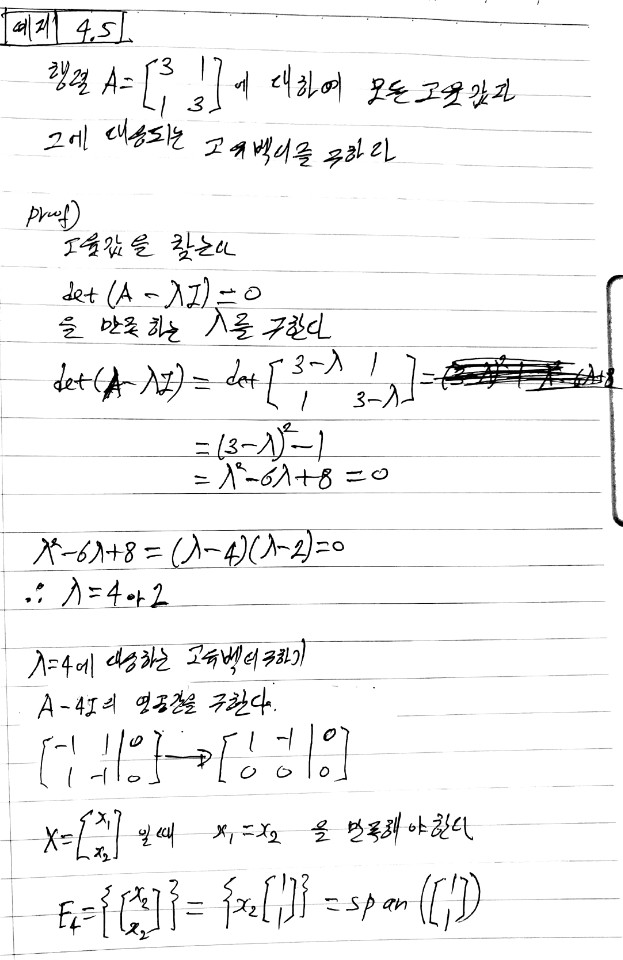 예제 4.5
행렬 A = [3 1; 1 3] 에 대하여 모든 고윳값과
그에 대응되는 고유벡터를 구하라
proof)
고윳값을 찾는다
det (A - λI) = 0
을 만족하는 λ를 구한다
det(A - λI) = det [3-λ 1; 1 3-λ] =
= (3-λ)² - 1
= λ² - 6λ + 8 = 0
λ² - 6λ + 8 = (λ-4)(λ-2) = 0
∴ λ = 4 or 2
λ=4에 대응하는 고유벡터 구하기
A - 4I의 영공간을 구한다.
[-1 1 | 0; 1 -1 | 0] → [1 -1 | 0; 0 0 | 0]
X = [x₁; x₂] 일때 x₁ = x₂ 을 만족해야한다
E₄ = {[x₂; x₂]} = {x₂[1; 1]} = span ([1; 1])